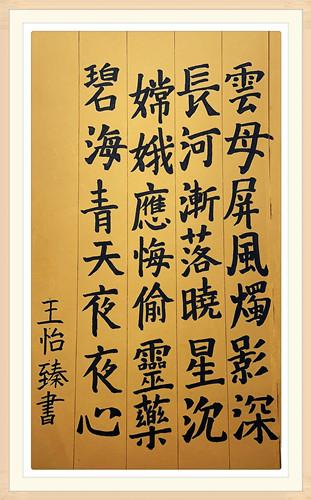 雲母屏風燭影深
長河漸落曉星沉
嫦娥應悔偷靈藥
碧海青天夜夜心
王怡臻書